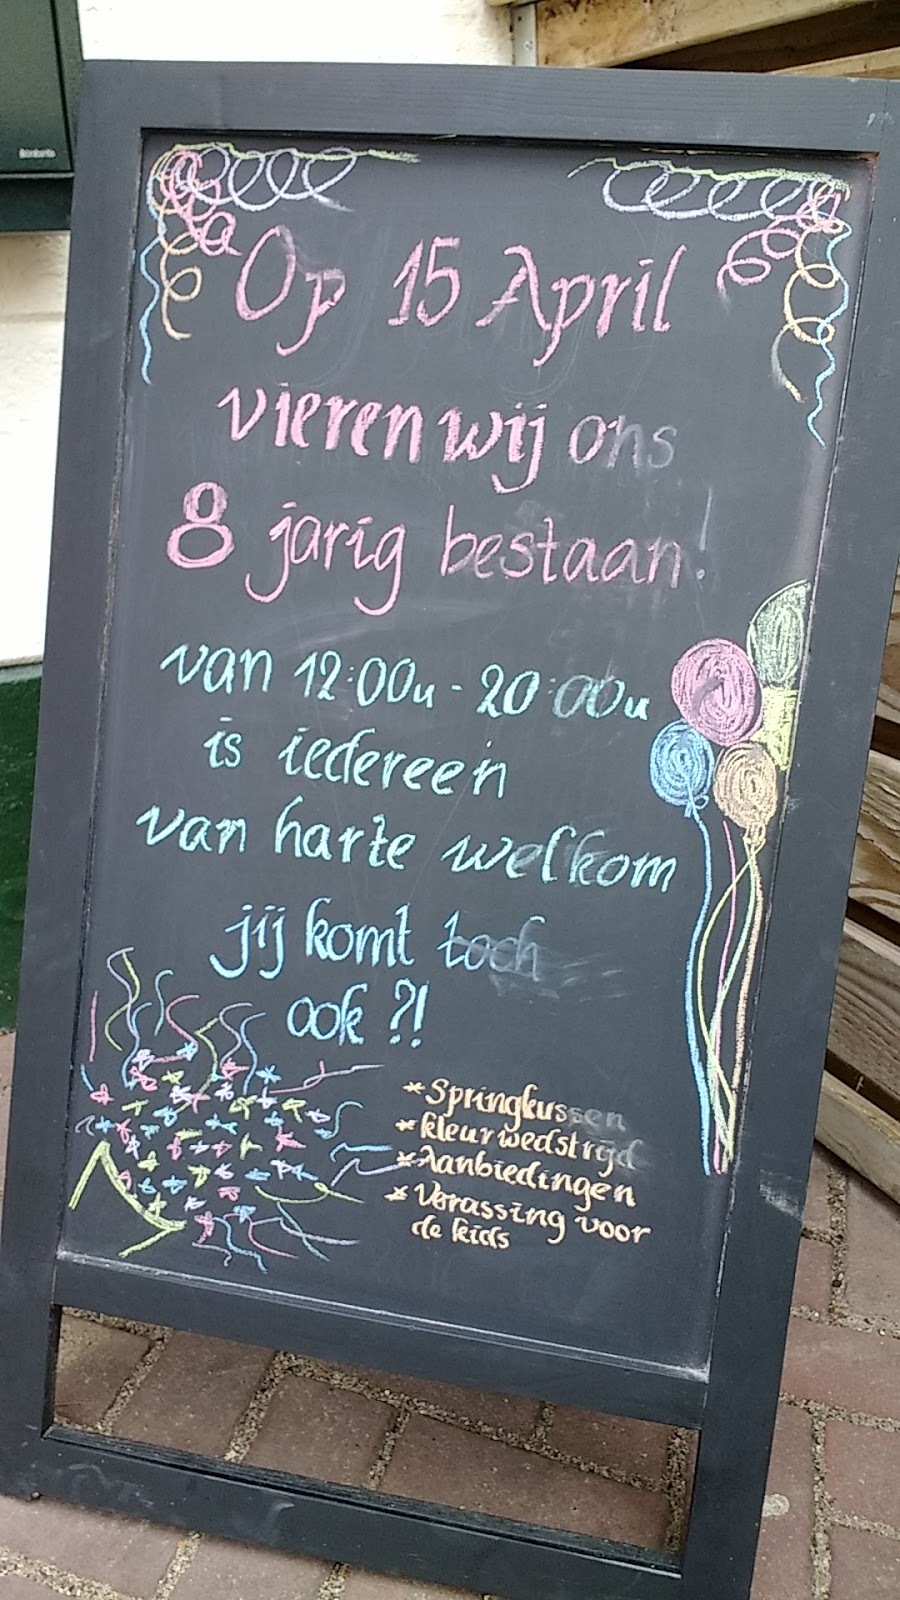 Op 15 April
vieren wij ons
8 jarig bestaan!
van 12:00u - 20:00u
is iedereen
van harte welkom
jij komt toch
ook ?!
*Springkussen
*kleurwedstrijd
*Aanbiedingen
*Verassing voor
de kids